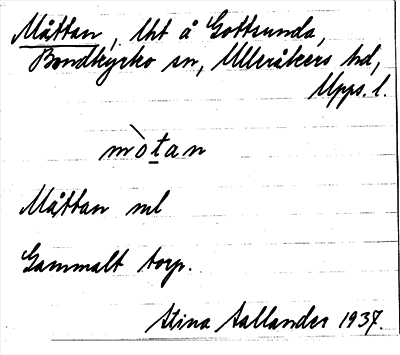 Måttan, lht å Gottsunda,
Bondkyrko sn, Ulleråkers hd,
Upps. l.
mò̱tan
Måttan ml
Gammalt torp.
Stina Sallander 1937.